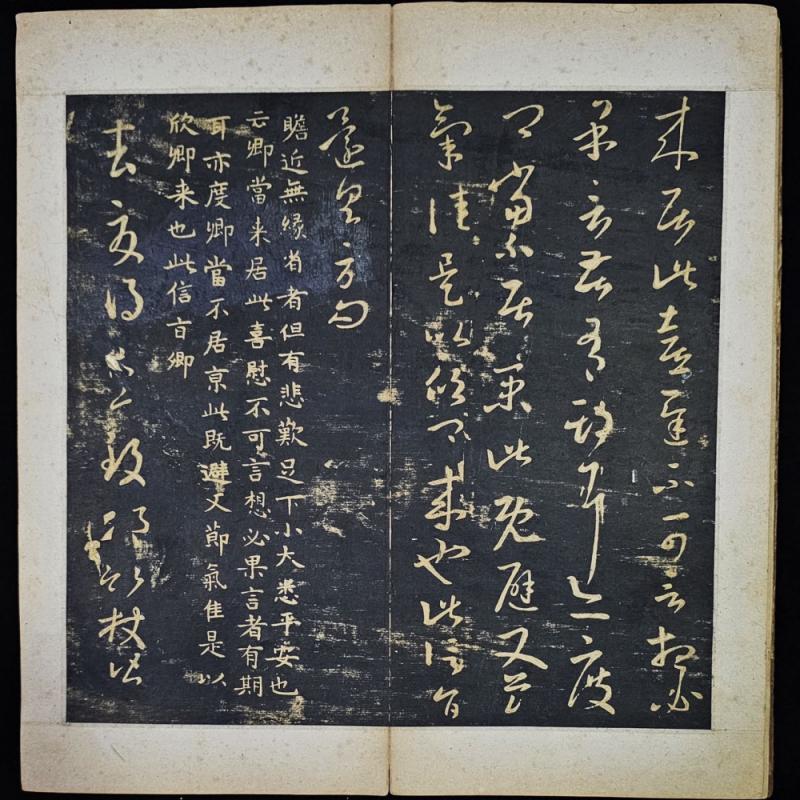 来居此喜遲不可言想必
果言告有期耳亦度
卿當不居京此既避又節
氣佳是以欣卿来也此信旨
還具示問
瞻近無緣省者但有悲歎足下小大悉平安也
云卿當来居此喜慰不可言想必果言者有期
耳亦度卿當不居亰此既避又節氣佳是以
欣卿来也此信旨卿
去夏得足下致邛竹杖皆